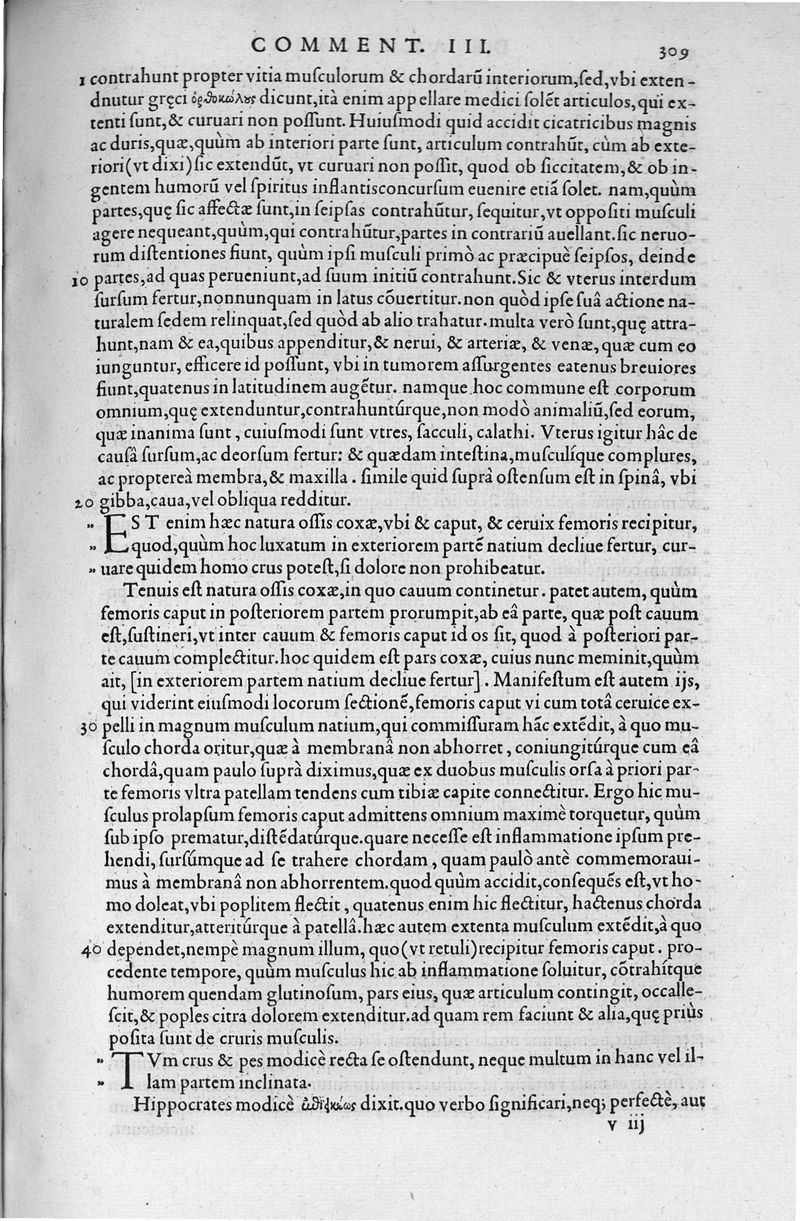 COMMENT. III.
309
1 contrahunt propter vitia muſculorum & chordarũ interiorum,ſed,vbi exten-
dnutur gręci ὀρθοκώλους dicunt,ità enim app ellare medici ſolẽt articulos,qui ex-
tenti ſunt,& curuari non poſſunt. Huiuſmodi quid accidit cicatricibus magnis
ac duris,quæ,quùm ab interiori parte ſunt, articulum contrahũt, cùm ab exte-
riori(vt dixi)ſic extendũt, vt curuari non poſſit, quod ob ſiccitatem,& ob in-
gentem humorũ vel ſpiritus inflantisconcurſum euenire etiã ſolet. nam,quùm
partes,quę ſic affectæ ſunt,in ſeipſas contrahũtur, ſequitur,vt oppoſiti muſculi
agere nequeant,quùm,qui contrahũtur,partes in contrariũ auellant.ſic neruo-
rum diſtentiones fiunt, quùm ipſi muſculi primò ac præcipuè ſeipſos, deinde
10 partes,ad quas perueniunt,ad ſuum initiũ contrahunt.Sic & vterus interdum
ſurſum fertur,nonnunquam in latus cõuertitur.non quòd ipſe ſuâ actione na-
turalem ſedem relinquat,ſed quòd ab alio trahatur.multa verò ſunt,quę attra-
hunt,nam & ea,quibus appenditur,& nerui, & arteriæ, & venæ,quæ cum eo
iunguntur, efficere id poſſunt, vbi in tumorem aſſurgentes eatenus breuiores
fiunt,quatenus in latitudinem augẽtur. namque hoc commune eſt corporum
omnium,quę extenduntur,contrahuntúrque,non modò animaliũ,ſed eorum,
quæ inanima ſunt, cuiuſmodi ſunt vtres, ſacculi, calathi. Vterus igitur hâc de
cauſâ ſurſum,ac deorſum fertur: & quædam inteſtina,muſculíque complures,
ac proptereà membra,& maxilla. ſimile quid ſuprà oſtenſum eſt in ſpinâ, vbi
20 gibba,caua,vel obliqua redditur.
„ EST enim hæc natura oſſis coxæ,vbi & caput, & ceruix femoris recipitur,
„ quod,quùm hoc luxatum in exteriorem partẽ natium decliue fertur, cur-
„ uare quidem homo crus poteſt,ſi dolore non prohibeatur.
Tenuis eſt natura oſſis coxæ,in quo cauum continetur. patet autem, quùm
femoris caput in poſteriorem partem prorumpit,ab eâ parte, quæ poſt cauum
eſt,ſuſtineri,vt inter cauum & femoris caput id os ſit, quod à poſteriori par-
te cauum complectitur.hoc quidem eſt pars coxæ, cuius nunc meminit,quùm
ait, [in exteriorem partem natium decliue fertur]. Manifeſtum eſt autem ijs,
qui viderint eiuſmodi locorum ſectionẽ,femoris caput vi cum totâ ceruice ex-
30 pelli in magnum muſculum natium,qui commiſſuram hãc extẽdit, à quo mu-
ſculo chorda oritur,quæ à membranâ non abhorret, coniungitúrque cum eâ
chordâ,quam paulo ſuprà diximus,quæ ex duobus muſculis orſa à priori par-
te femoris vltra patellam tendens cum tibiæ capite connectitur. Ergo hic mu-
ſculus prolapſum femoris caput admittens omnium maximè torquetur, quùm
ſub ipſo prematur,diſtẽdatúrque.quare neceſſe eſt inflammatione ipſum pre-
hendi, ſurſúmque ad ſe trahere chordam, quam paulò antè commemoraui-
mus à membranâ non abhorrentem.quod quùm accidit,conſequẽs eſt,vt ho-
mo doleat,vbi poplitem flectit, quatenus enim hic flectitur, hactenus chorda
extenditur,atteritúrque à patellâ.hæc autem extenta muſculum extẽdit,à quo
40 dependet,nempè magnum illum, quo(vt retuli)recipitur femoris caput. pro-
cedente tempore, quùm muſculus hic ab inflammatione ſoluitur, cõtrahítque
humorem quendam glutinoſum, pars eius, quæ articulum contingit, occalle-
ſcit,& poples citra dolorem extenditur.ad quam rem faciunt & alia,quę priùs
poſita ſunt de cruris muſculis.
„ TVm crus & pes modicè recta ſe oſtendunt, neque multum in hanc vel il-
„ lam partem inclinata.
Hippocrates modicè dixit.quo verbo ſignificari,neq; perfectè, aut
v iij